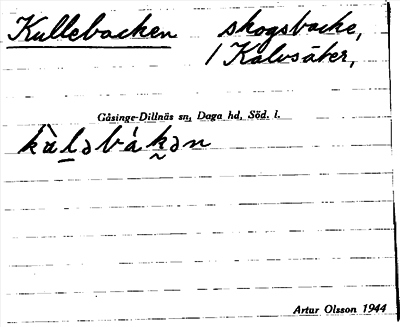 Kullebacken skogsbacke,
i Kalvsäter,
Gåsinge-Dillnäs sn, Daga hd, Söd. l.
kùləbákən
Artur Olsson 1944